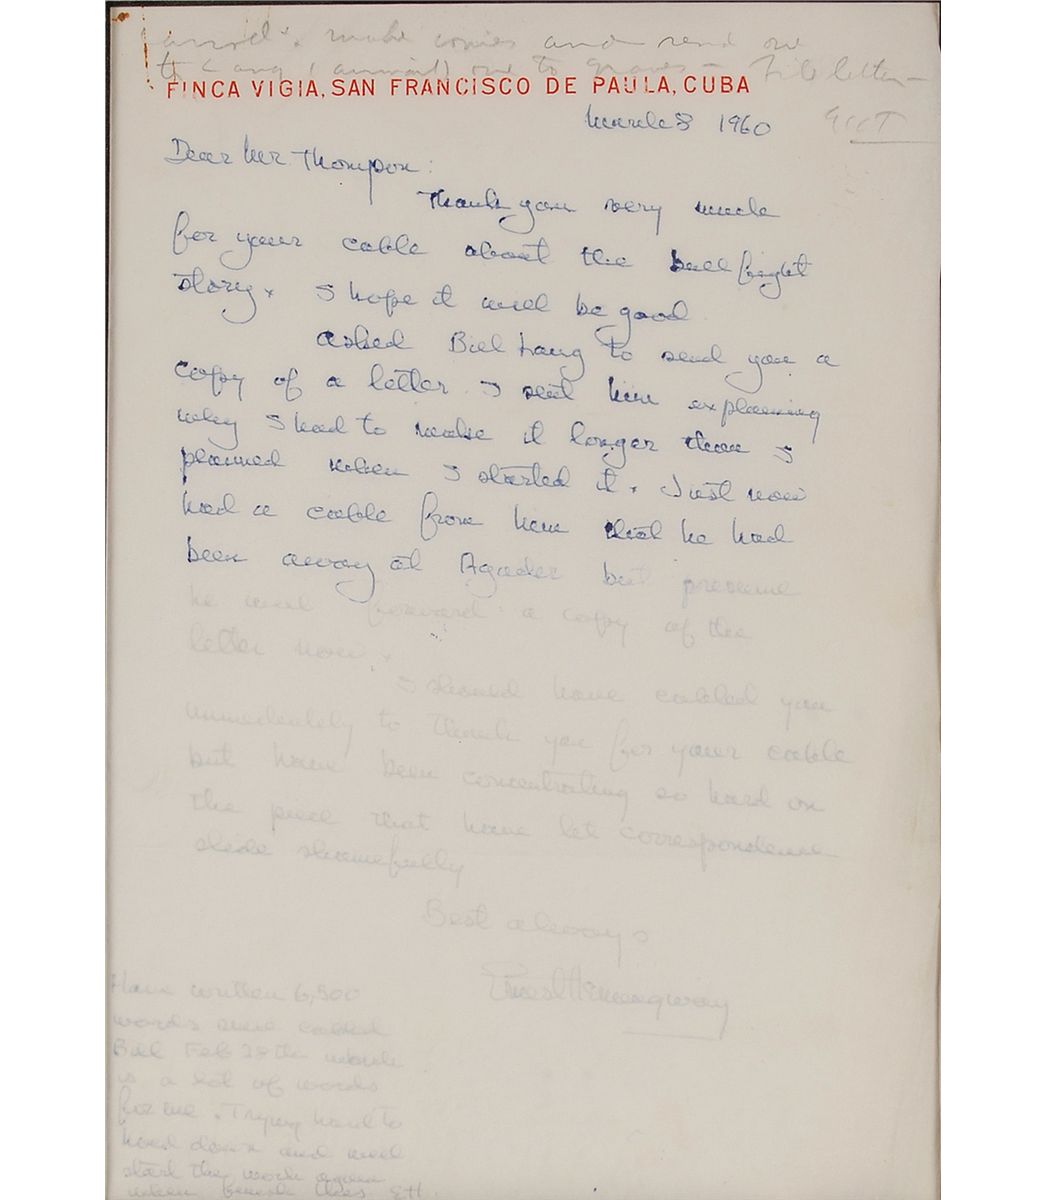 make copies and send one
to Lang (airmail) one to Graves - File letter -
FINCA VIGIA, SAN FRANCISCO DE PAULA, CUBA
March 8 1960
Dear Mr. Thompson:
Thank you very much
for your cable about the bull fight
story x I hope it will be good
asked Bill Lang to send you a
copy of a letter I sent him explaining
why I had to make it longer than I
planned when I started it x Just now
had a cable from him that he had
been away at Agader but presume
he will forward a copy of the
letter now x
I should have cabled you
immediately to thank you for your cable
but have been concentrating so hard on
the piece that have let correspondence
slide shamefully
Best always
Ernest Hemingway
Have written 6,500
words since cabled
Bill Feb 28th which
is a lot of words
for me. Trying hard to
hold down and will
start the work again
when finish this